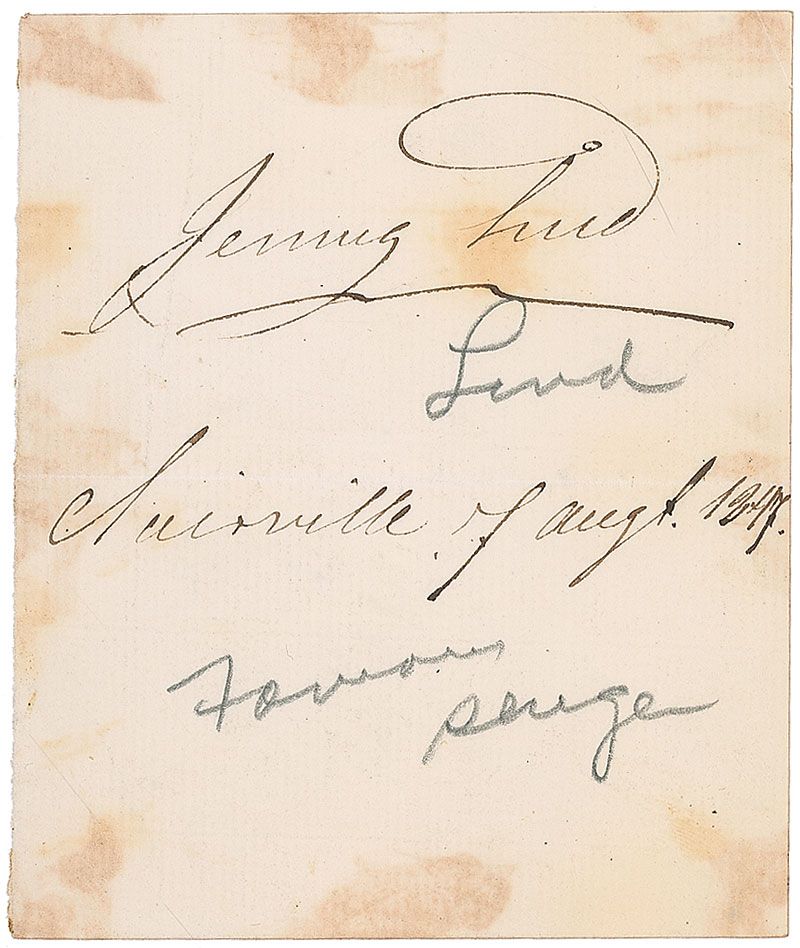 Jenny Lind
Lind
Clairville 17 augt. 1847.
Famous
singer